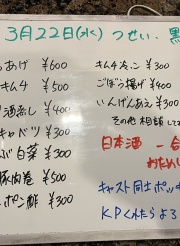 3月22日(水) つせい.
らあげ ¥600
キムチ ¥500
酒蒸し ¥400
キャベツ ¥300
ぶ白菜 ¥300
豚肉巻 ¥500
ポン酢 ¥300
¥300
ごぼう揚げ ¥400
いんげんあえ ¥300
その他 相談して
日本酒 一合
おためし
キャスト同士ポッキ
KPくれたらよろ